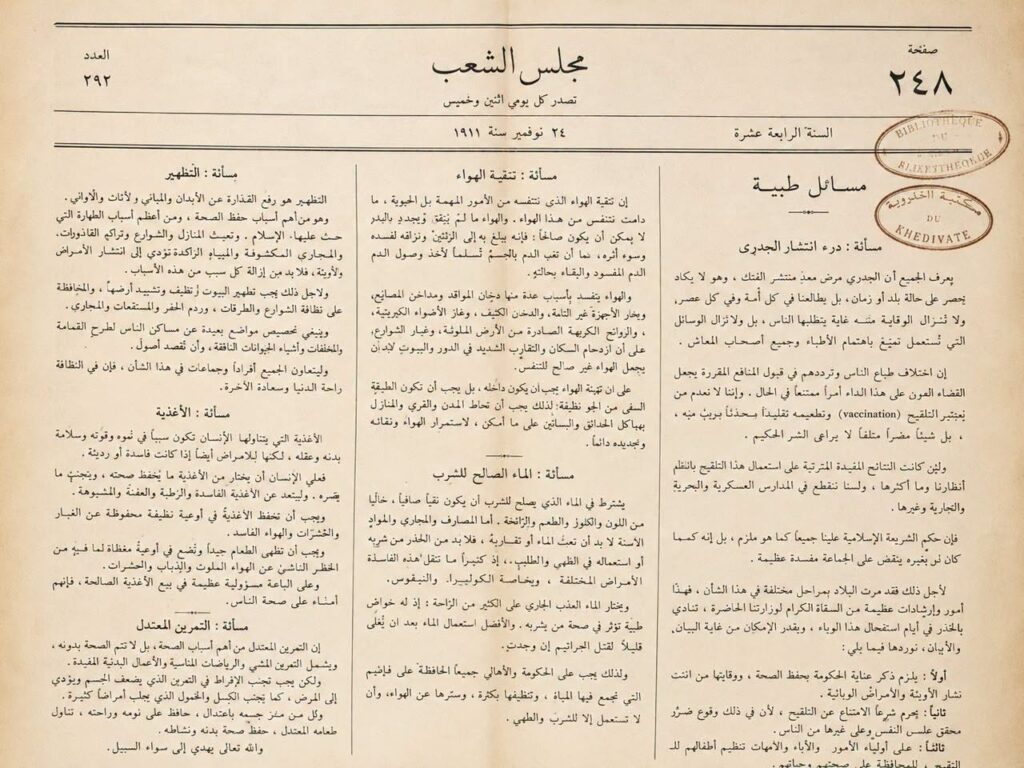 صفحة
٢٤٨
مجلس الشعب
تصدر كل يومي اثنين وخميس
العدد
٢٩٢
السنة الرابعة عشرة
٢٤ نوفمبر سنة ١٩١١
BIBLIOTHEQUE
DU
مكتبة
DU
KHEDIVATE
مسائل طبية
مسألة : درء انتشار الجدري
يعرف الجميع أن الجدري مرض معد منتشر الفتك ، وهو لا يكاد
يحصر على حالة بلد أو زمان، بل يطالعنا في كل أمة وفي كل عصر.
ولا تنزال الوقاية منه غاية يتطلبها الناس ، بل ولا تزال الوسائل
التي تُستعمل باهتمام الأطباء وجميع أصحاب المعاش .
إن اختلاف طباع الناس وترددهم في قبول المنافع المقررة يجعل
القضاء العون على هذا الداء أمراً ممتنعاً في الحال . وإننا لا نعدم من
التلقيح (vaccination) وتطعيمه تقليداً
، بل شيئاً مضراً متلفاً لا يراعى الشر الحكيم .
ولئن كانت النتائج المفيدة المترتبة على استعمال هذا التلقيح
أنظارنا وما أكثرها ، ولسنا ننقطع في المدارس العسكرية والبحرية
والتجارية وغيرها .
فإن حكم الشريعة الإسلامية علينا جميعاً كما هو ملزم ، بل إنه كمـا
كان ينقض على الجماعة مفسدة عظيمة .
لأجل ذلك فقد مرت البلاد بمراحل مختلفة في هذا الشأن ، فهذا
أمور وإرشادات عظيمة من السقاة الكرام لوزارتنا الحاضرة ، تنادي
بالخذر في أيام استفحال هذا الوباء ، وبقدر الإمكان من غاية البيان،
والأبيان، نوردها فيما يلي:
أولاً : يلزم ذكر عناية الحكومة بحفظ الصحة ، ووقايتها من انتت
نشار الأوبئة والأمراض الوبائية .
ثانياً : يحرم شرعاً الامتناع عن التلقيح ، لأن في ذلك وقوع ضرر
محقق على النفس وعلى غيرها من الناس.
ثالثاً : على أولياء الأمور والأباء والأمهات تنظيم أطفالهم
التقيح ، للمحافظة على صحتهم وحياتهم .
مسألة : تنقية الهواء
إن تنقية الهواء الذي نتنفسه من الأمور المهمة بل الحيوية ، ما
دامت نتنفس من هذا الهواء . والهواء ما لم ويجدد
لا يمكن أن يكون صالحاً؛ فإنه يبلغ به إلى ونزاقه لفسده
وسوء أثره، نما أن تغب الدم بالجسم لأخذ وصول الدم
الدم المفسود والبقاء بحالته.
والهواء يتفسد بأسباب عدة منها دخان المواقد ومداخن المصانع،
وبخار الأجهزة غير التامة، والدخان الكثيف ، وغاز الأضواء الكبريتية،
، والروائح الكريهة الصادرة من الأرض الملوثة، وغبار الشوارع،
على أن ازدحام السكان والتقارب الشديد في الدور والبيوت
يجعل الهواء غير صالح للتنفس.
على ان الهواء يجب أن يكون داخله ، بل يجب أن تكون الطبقة
السفى من الجو نظيفة؛ لذلك يجب أن تحاط المدن والقرى والمنازل
بهياكل الحدائق والبساتين على ما أمكن ، لاستمرار الهواء ونقائه
وتجديده دائماً.
مسألة : الماء الصالح للشرب
يشترط في الماء الذي يصلح للشرب أن يكون نقياً صافياً ، خالياً
من اللون والكلوز والطعم والرائحة . أما المصارف والمجاري والمواد
الآسنة لا بد أن الماء أو ، فلابد من الخذر من شربه
أو استعماله في الظهي والطليب.، إذ كثيراً ما تنقل هذه الفاسدة
الأمراض المختلفة ، وبخاصة الكوليرا. والنيفوس.
ويختار الماء العذب الجاري على الكثير من الراحة : إذ له خواض
طبية تؤثر في صحة من يشربه . والأفضل استعمال الماء بعد ان يُغلى
قليلاً لقتل الجراثيم إن وجدت.
ولذلك يجب على الحكومة والأهالي جميعاً الحافظة على
التي تجمع فيها المياه ، وتنظيفها بكثرة ، وسترها عن الهواء، وأن
لا تستعمل إلا للشرب والطهي .
مسألة : التظهير
التظهير هو رفع القذارة عن الأبدان والمباني ولأثاث والأواني .
وهو من أهم أسباب حفظ الصحة ، ومن أعظم أسباب الطهارة التي
حث عليها الإسلام . وتعيث المنازل والشوارع وتراكم القاذورات،
والمجاري المكشوفة والمياه الراكدة تؤدي إلى انتشار الأمراض
والأوبئة، فلا بد من إزالة كل سبب من هذه الأسباب .
ولاجل ذلك يجب تطهير البيوت وتشييد أرضها ، والمحافظة
على نظافة الشوارع والطرقات ، وردم الحفر والمستقعات والمجاري .
وينبغي تحصيص مواضع بعيدة عن مساكن الناس لطرح القمامة
والمخلفات وأشياء الحيوانات النافقة ، وأن تُقصد أصول.
وليتعاون الجميع أفراداً وجماعات في هذا الشأن ، فإن في النظافة
راحة الدنيا وسعادة الأخرة.
مسألة : الأغذية
الأغذية التي يتناولها الإنسان تكون سبباً في نموه وقوته وسلامة
بدنه وعقله ، لكنها للامراض أيضاً إذا كانت فاسدة أو رديئة .
فعلي الإنسان أن يختار من الأغذية ما يحفظ صحته ، ويتجنب ما
يضره . وليبتعد عن الأغذية الفاسدة والرطبة والعفنة والمشبوهة .
ويجب أن تحفظ الأغذية في أوعية نظيفة محفوظة عن الغبار
والحشرات والهواء الفاسد .
ويجب أن تظهى الطعام جيداً وتضع في أوعية مغطاة لما فيه من
الخظر الناشئ عن الهواء الملوث والذباب والحشرات .
وعلى الباعة مسؤولية عظيمة في بيع الأغذية الصالحة ، فإنهم
أمناء على صحة الناس.
مسألة : التمرين المعتدل
إن التمرين المعتدل من أهم أسباب الصحة، بل لا تتم الصحة بدونه ،
ويشمل التمرين المشي والرياضات المناسبة والأعمال البدنية المفيدة .
ولكن يجب تجنب الإفراط في التمرين الذي يضعف الجسم ويؤدي
إلى المرض ، كما يجتنب الكسل والخمول الذي يجلب أمراضاً كثيرة .
وكل من جسمه باعتدال ، حافظ على نومه وراحته ، تناول
طعامه المعتدل ، حفظ صحة بدنه ونشاطه .
والله تعالى يهدي إلى سواء السبيل.